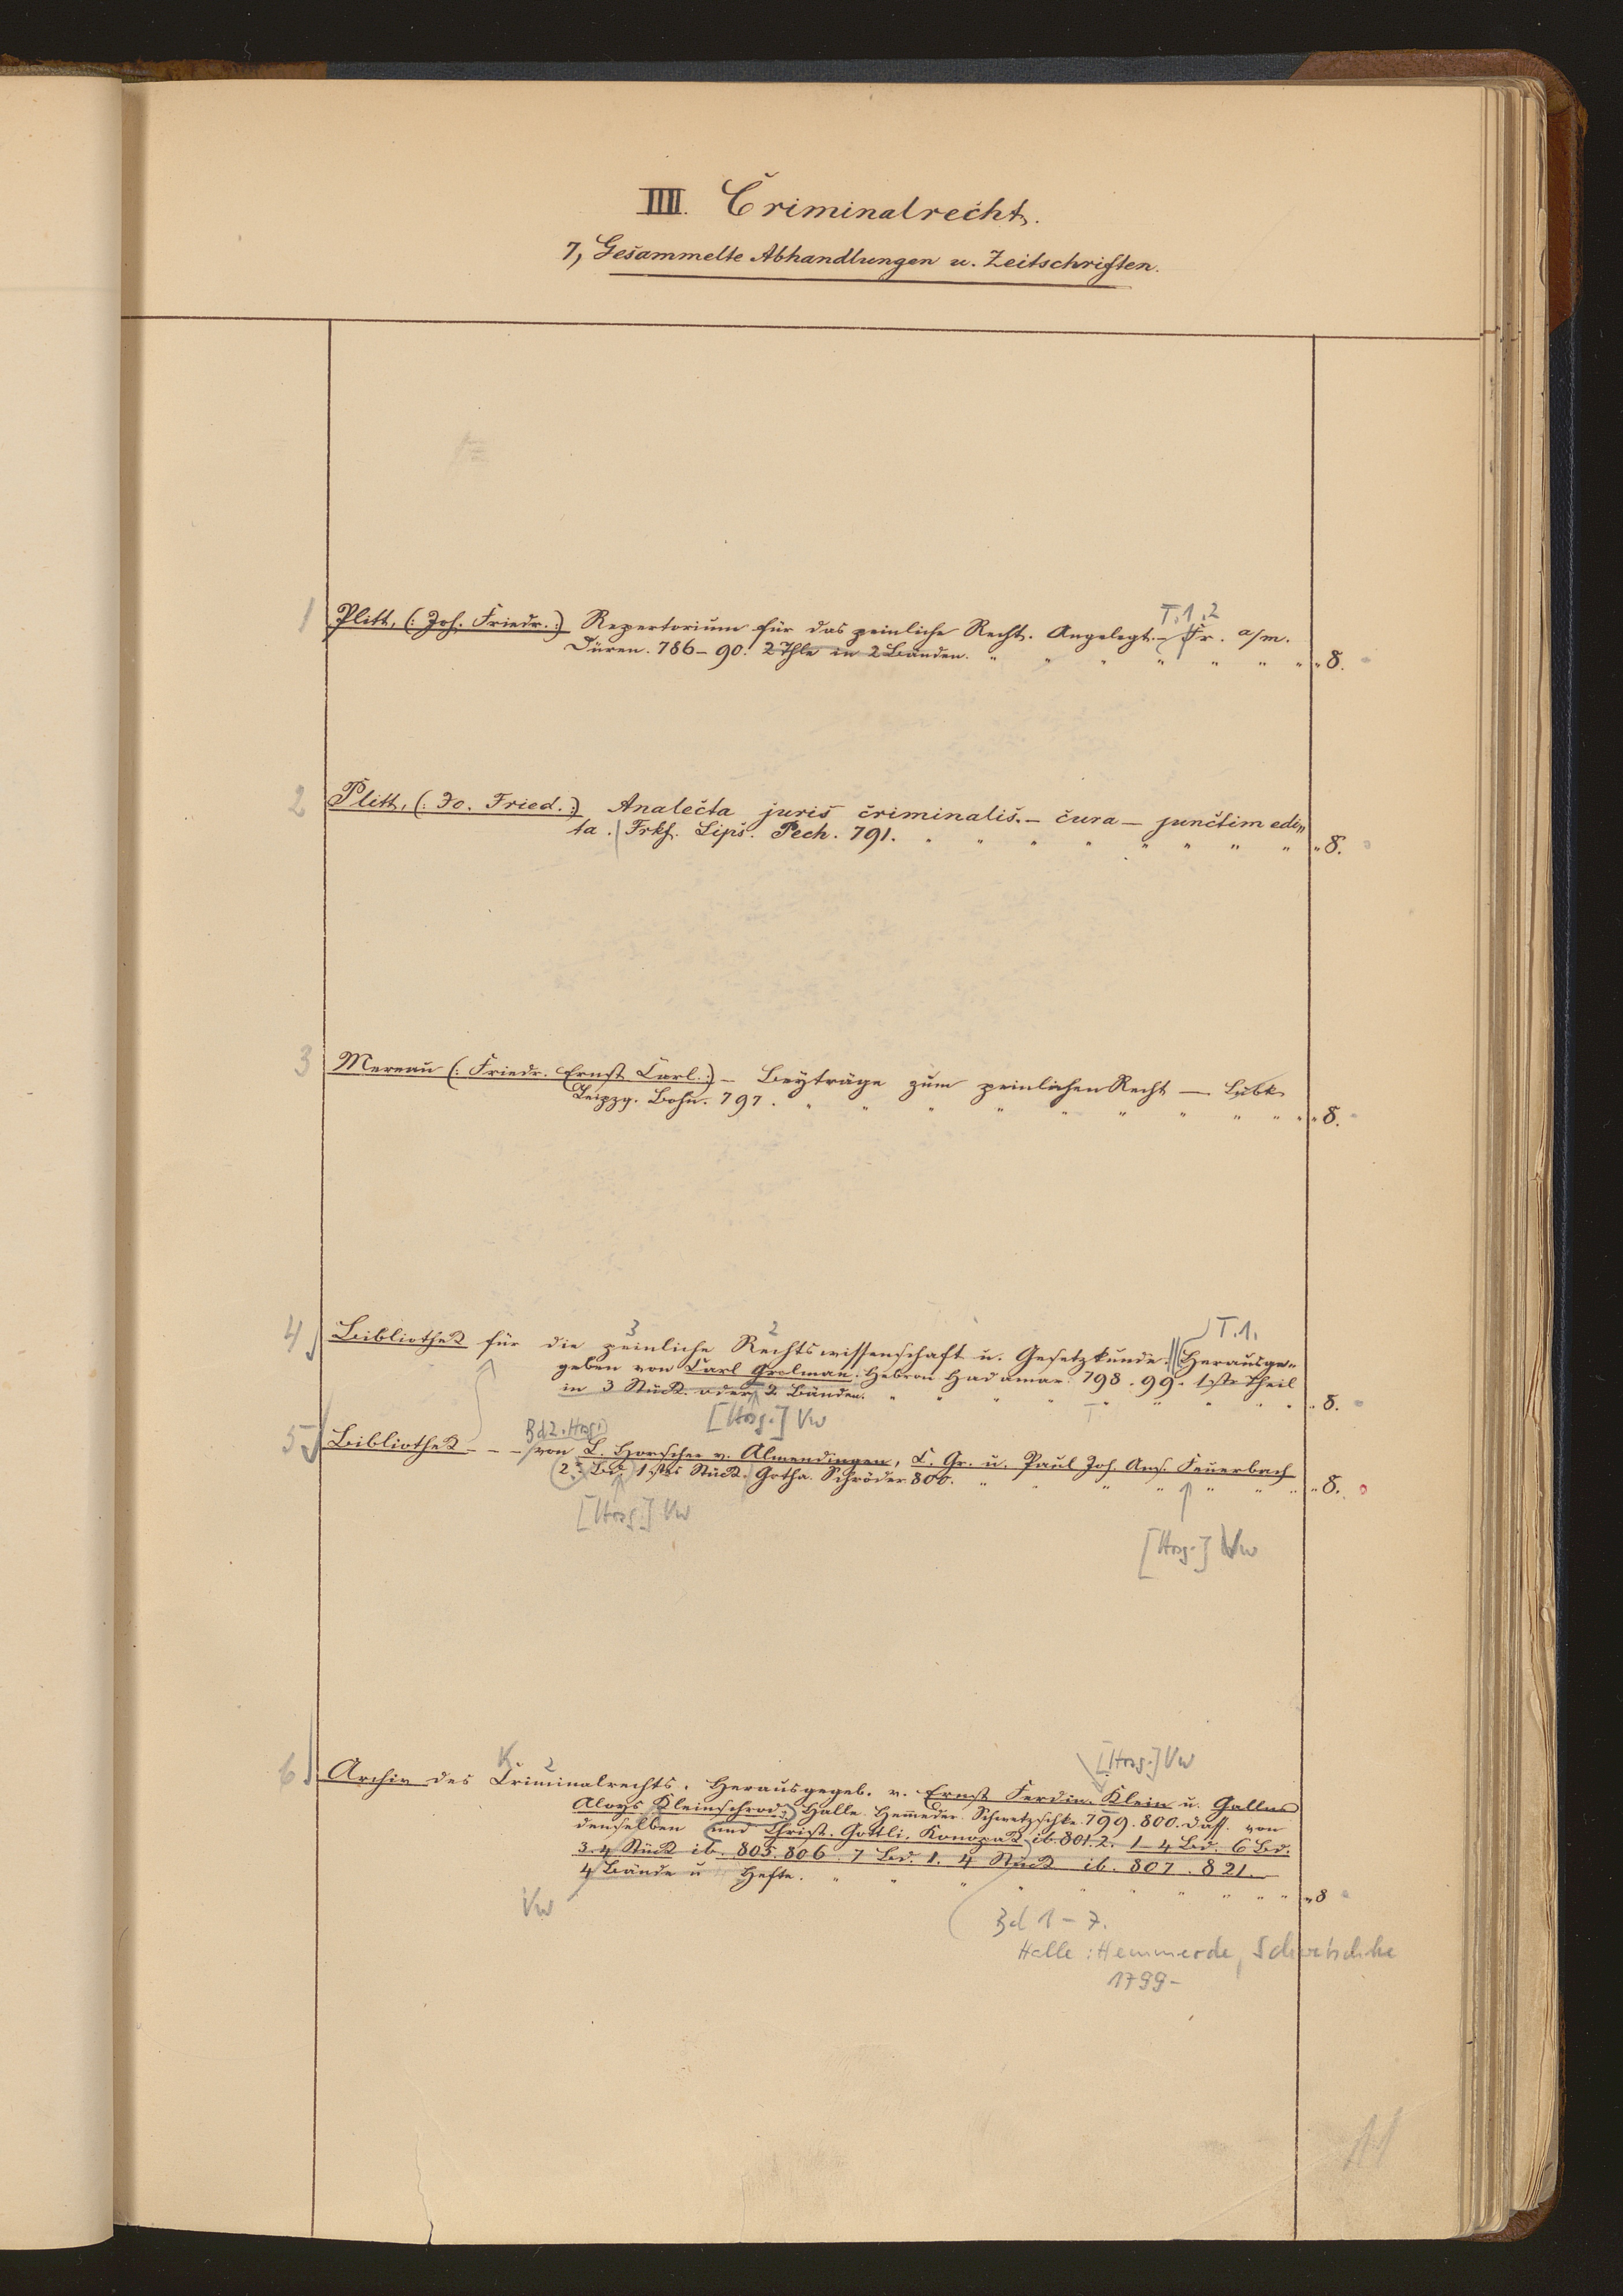 IIII. Criminalrecht.
7, Gesammelte Abhandlungen u. Zeitschriften.
T. 1. 2
1 Plitt, (: Joh. Friedr. :) Repertorium für das peinliche Recht. Angelegt. – Fr. a/m.
Düren. 786–90. 2 Thle in 2 Bänden. " " " " " " " " 8.
2 Plitt, (: Jo. Fried. :) Analecta juris criminalis. – cura – junctim edi„
ta. Frkf. Lips. Pech. 791. " " " " " " " " " 8.
3 Mereau (: Friedr. Ernst Carl. :) – Beyträge zum peinlichen Recht — Lübk
Leipzg. Bohn. 797. " " " " " " " " " " 8.
3 2 T. 1.
4 Bibliothek für die peinliche Rechtswissenschaft u. Gesetzkunde. Herausge„
geben von Carl Grolman. Hebron Hadamar. 798. 99. 1ste Theil
in 3 Stück. oder 2 Bänden. " " " " " " " " 8.
[Hrsg.] Vw
Bd 2. Hrsg.
5 Bibliothek – – – von L. Harscher v. Almendingen, C. Gr. u. Paul Joh. Ans. Feuerbach
2r Bd. 1stes Stück. Gotha. Schröder. 800. " " " " " " " 8.
[Hrsg.] Vw
[Hrsg.] Vw
K 2 [Hrsg.] Vw
6 Archiv des Criminalrechts. Herausgegeb. v. Ernst Ferdin. Klein u. Gallus
Aloys Kleinschrod. Halle. Hemeder. Schwetzschke. 799. 800. dass. von
denselben und Christ. Gottli. Konopak ib. 801. 2. 1–4 Bd. 6 Bd.
3. 4 Stück ib. 805. 806. 7 Bd. 1. 4 Stück ib. 807. 821.
4 Bände u Hefte. " " " " " " " " " " 8
Vw
Bd 1 – 7.
Halle : Hemmerde, Schwetschke
1799–
11